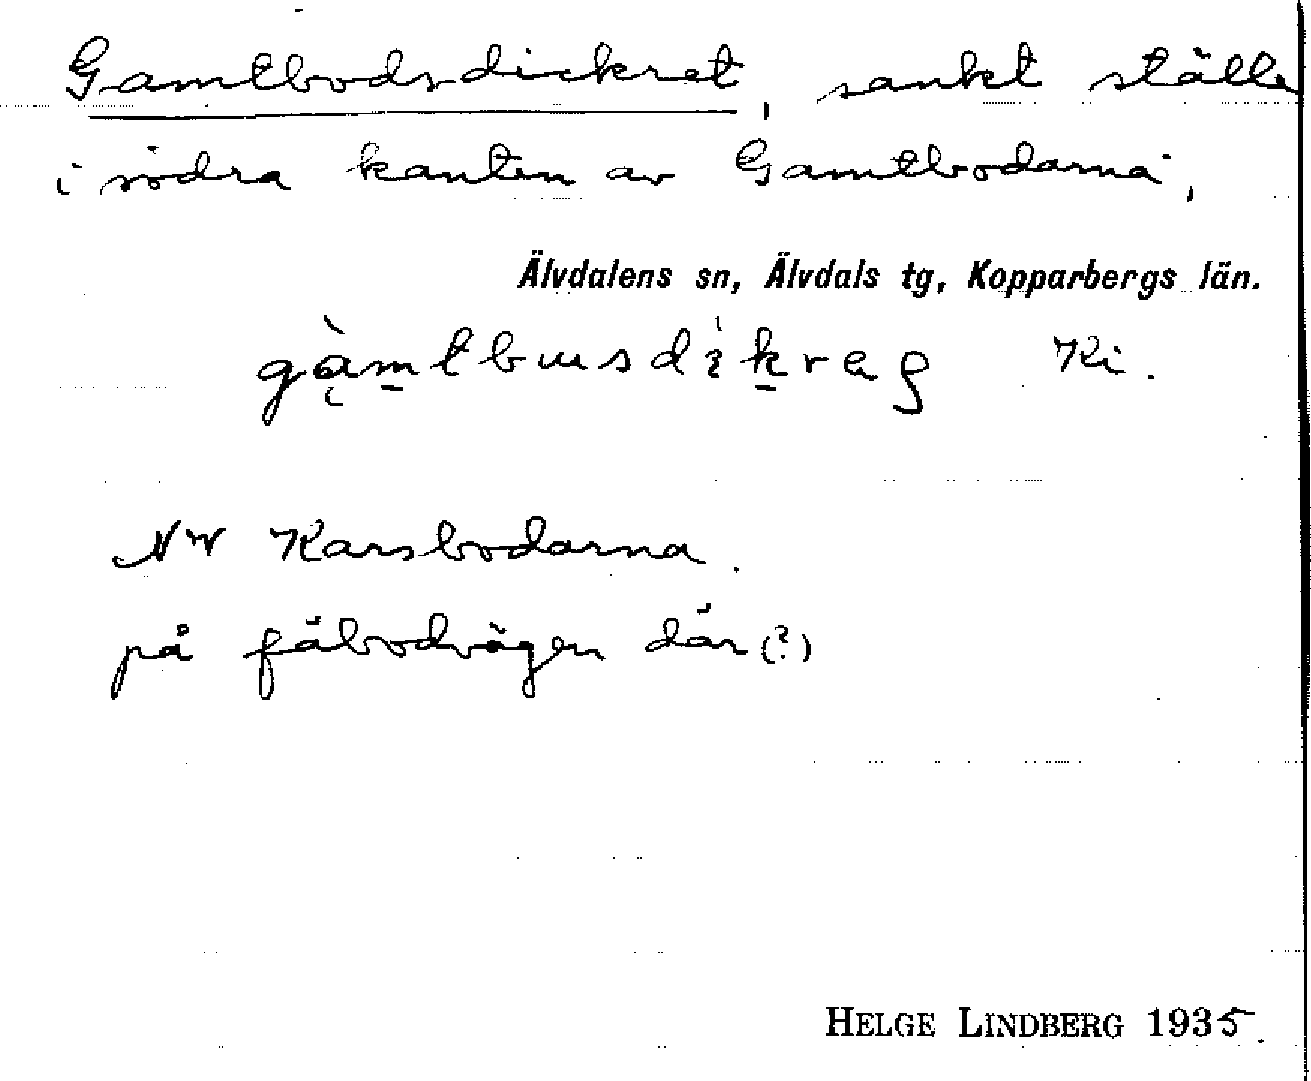 Gamtbodsdickret, sankt ställe
i södra kanten av Gamtbodarna,
Älvdalens sn, Älvdals tg, Kopparbergs län.
Ki.
NV Karsbodarna.
på fäbodvägen där (?)
HELGE LINDBERG 1935.